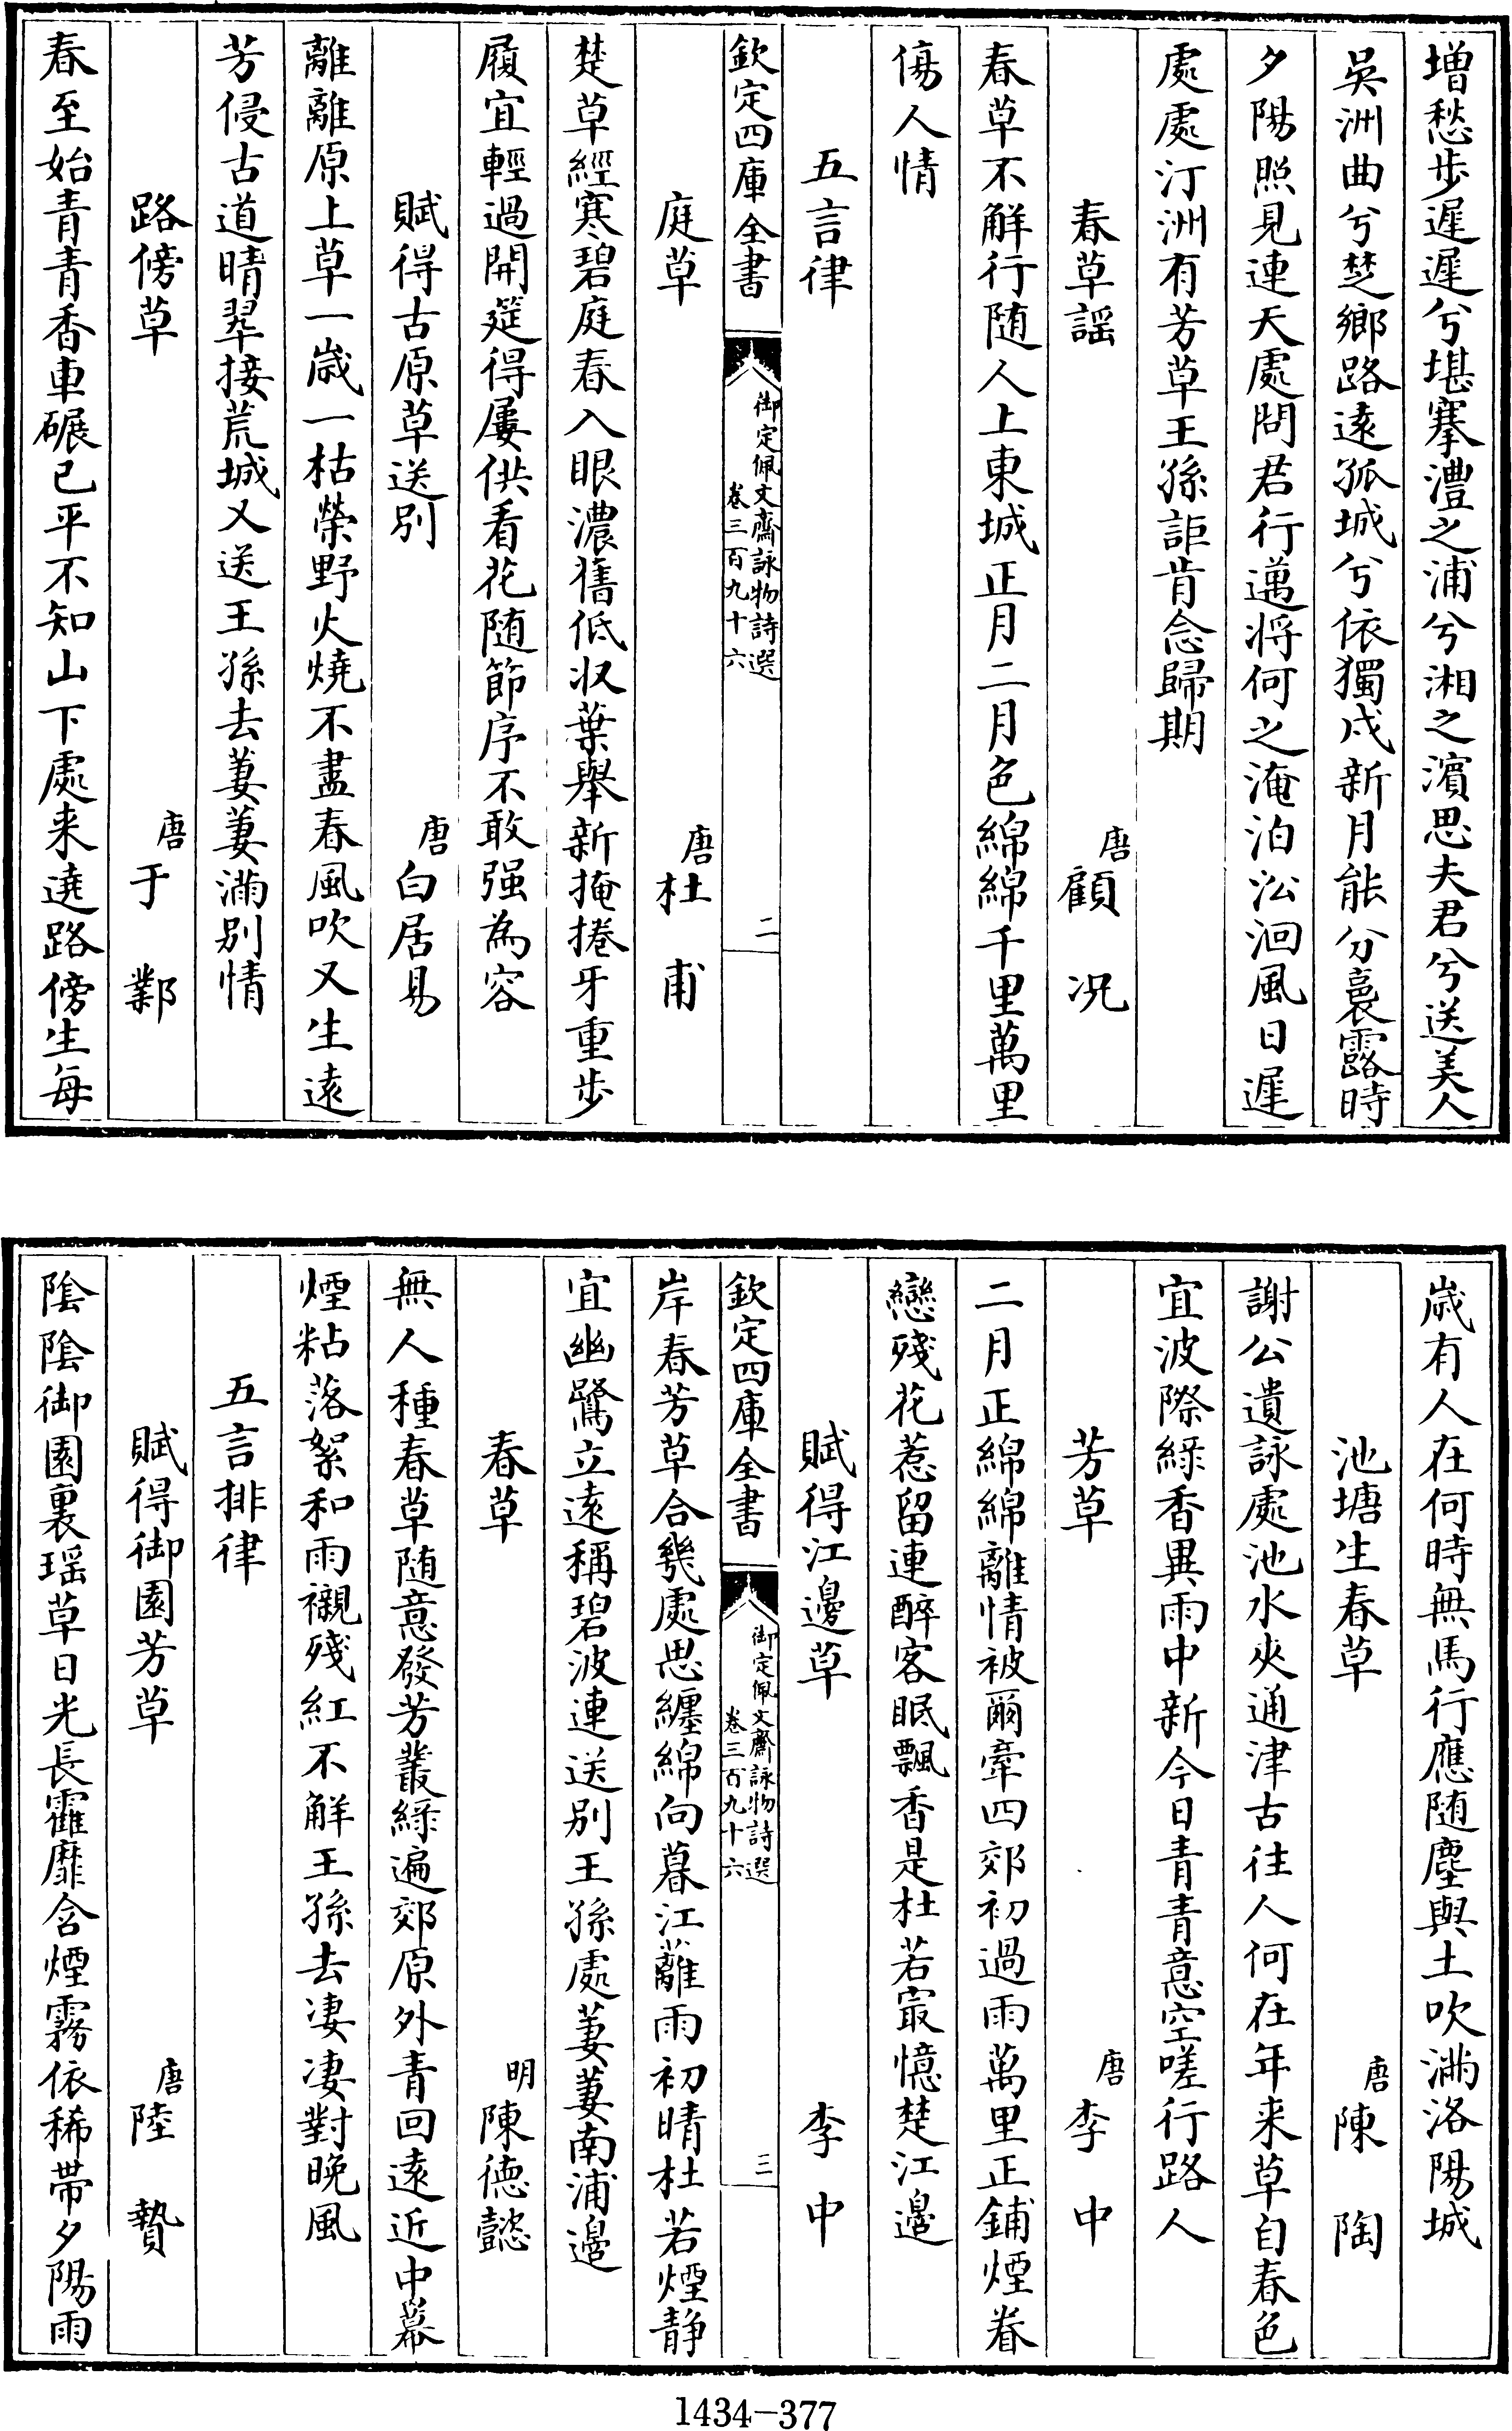 增愁步遲遲兮堪搴澧之浦兮湘之濱思夫君兮送美人
吳洲曲兮楚鄉路遠孤城兮依獨戍新月能分裛露時
夕陽照見連天處問君行邁將何之淹泊㳂洄風日遲
處處汀洲有芳草王孫詎肯念歸期
春草謠
唐顧況
春草不解行随人上東城正月二月色綿綿千里萬里
傷人情
五言律
欽定四庫全書
御定佩文齋詠物詩選
卷三百九十六
二
庭草
唐杜甫
楚草經寒碧庭春入眼濃舊低収葉舉新掩捲牙重步
履宜輕過開筵得屢供看花随節序不敢强為容
賦得古原草送別
唐白居易
離離原上草一歲一枯榮野火燒不盡春風吹又生遠
芳侵古道晴翠接荒城又送王孫去萋萋滿别情
路傍草
唐于鄴
春至始青青香車碾已平不知山下處来遶路傍生每
歲有人在何時無馬行應随塵與土吹滿洛陽城
池塘生春草
唐陳陶
謝公遺詠處池水夾通津古往人何在年来草自春色
宜波際綠香異雨中新今日青青意空嗟行路人
芳草
唐李中
二月正綿綿離情被爾牽四郊初過雨萬里正鋪煙眷
戀殘花惹留連醉客眠飄香是杜若㝡憶楚江邊
賦得江邊草
李中
欽定四庫全書
御定佩文齋詠物詩選
卷三百九十六
三
岸春芳草合幾處思纏綿向暮江蘺雨初晴杜若煙静
宜幽鷺立遠稱碧波連送别王孫處萋萋南浦邊
春草
明陳德懿
無人種春草随意發芳叢綠遍郊原外青回遠近中幕
煙粘落絮和雨襯殘紅不解王孫去凄凄對晚風
五言排律
賦得御園芳草
唐陸贄
陰陰御園裏瑶草日光長靃靡含煙霧依稀帶夕陽雨
1434-377